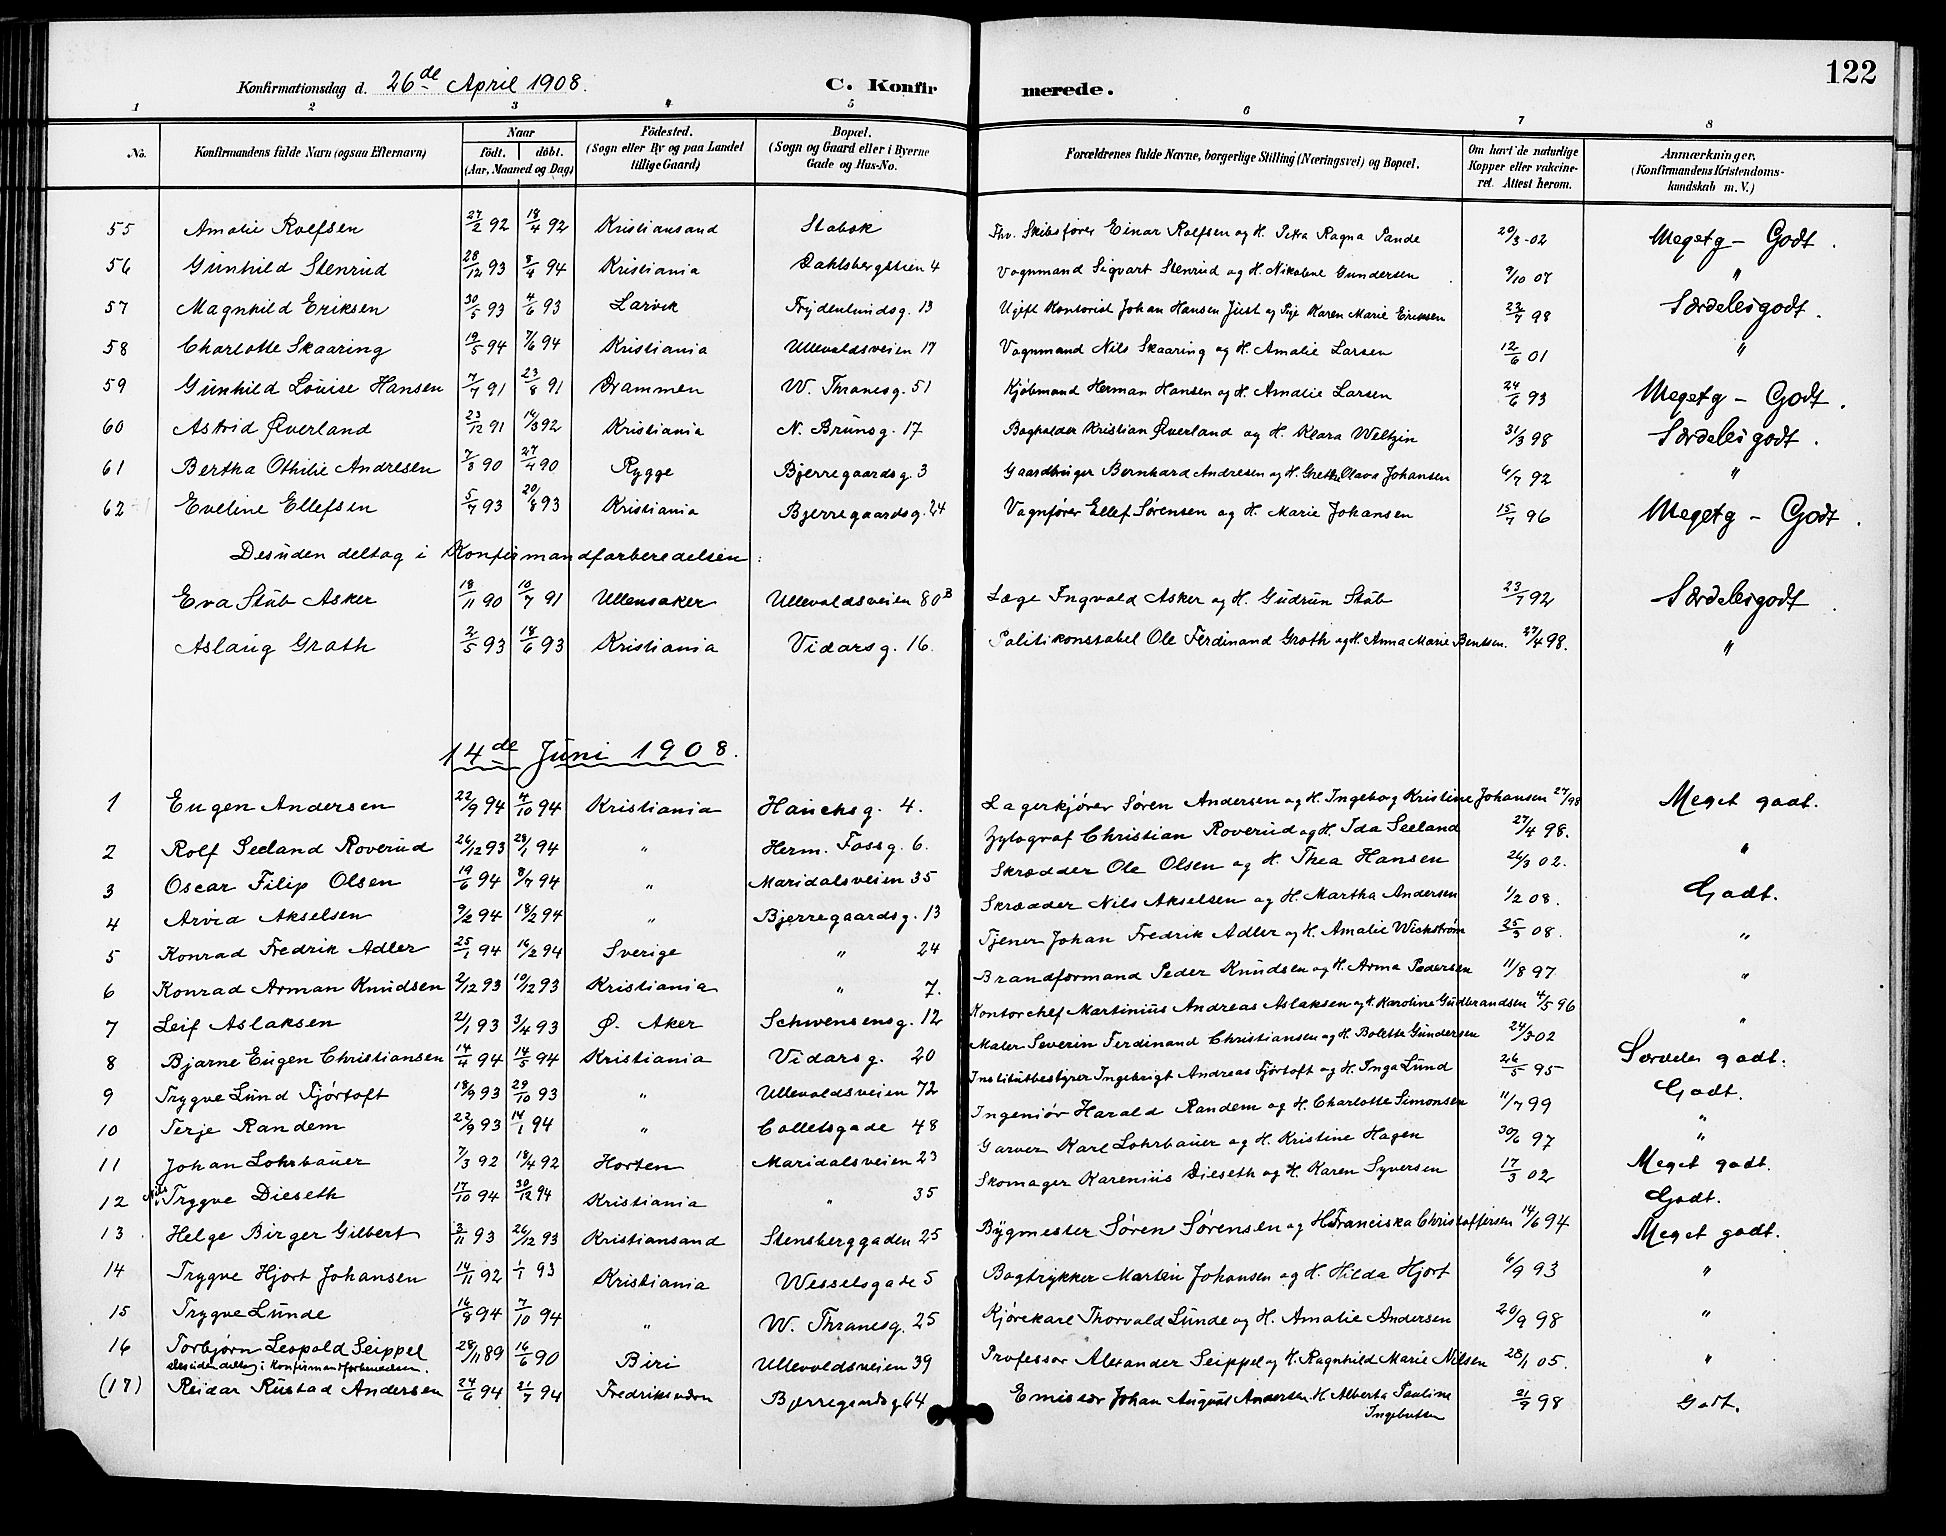 122
Konfirmationsdag d. 26de April 1908. C. Konfirmerede.
1 2 3 4 5 6 7 8
No. Konfirmandens fulde Navn (ogsaa Efternavn) Naar födt. döbt. (Aar, Maaned og Dag) Födested. (Sogn eller By og paa Landet tillige Gaard) Bopæl. (Sogn og Gaard eller i Byerne Gade og Hus-No. Forældrenes fulde Navne, borgerlige Stilling (Næringsvei) og Bopæl. Om havt de naturlige Kopper eller vakcineret. Attest herom. Anmærkninger. (Konfirmandens Kristendomskundskab m. V.)
55 Amalie Rolfsen 27/2 92 18/4 92 Kristiansand Stabæk Fhv. Skibsfører Einar Rolfsen og H. Petra Ragna Pande 20/3-02 Megetg - Godt.
56 Gunhild Stenrud 28/12 93 8/4 94 Kristiania Dahlsbergstien 4 Vognmand Sigvart Stenrud og H. Nikoline Gundersen 9/10 07 "
57 Magnhild Eriksen 30/5 93 4/6 93 Larvik Frydenlundsg. 13 Ugift Kontorist Johan Hansen Just og Pige Karen Marie Eriksen 22/7 98 Særdelesgodt.
58 Charlotte Skaaring 19/5 94 7/6 94 Kristiania Ullevoldsveien 17 Vognmand Nils Skaaring og H. Amalie Larsen 12/6 01 "
59 Gunhild Louise Hansen 7/7 91 23/8 91 Drammen W. Thranesg. 51 Kjøbmand Herman Hansen og H. Amalie Larsen 24/6 93 Megetg - Godt.
60 Astrid Øverland 23/12 91 14/3 92 Kristiania N. Brunsg. 17 Bogholder Kristian Øverland og H. Klara Weltzin 31/3 98 Særdelesgodt.
61 Bertha Othilie Andresen 7/3 90 27/4 90 Rygge Bjerregaardsg. 3 Gaardbruger Bernhard Andresen og H. Grethe Olava Johansen 6/7 92 "
62 Eveline Ellefsen 5/7 93 20/8 93 Kristiania Bjerregaardsg. 24 Vognfører Ellef Sørensen og H. Marie Johansen 15/7 96 Megetg - Godt.
Desuden deltog i Konfirmandforberedelsen:
Eva Stub Asker 18/11 90 10/7 91 Ullensaker Ullevoldsveien 80B Læge Ingvald Asker og H. Gudrun Stub 23/7 92 Særdelesgodt.
Aslaug Groth 2/5 93 18/6 93 Kristiania Vidarsg. 16. Politikonstabel Ole Ferdinand Groth og H. Anna Marie Bentsen. 27/4 98. "
14de Juni 1908.
1 Eugen Andersen 22/9 94 4/10 94 Kristiania Hauchsg. 4. Lagerkjører Søren Andersen og H. Ingeborg Kristine Johansen 27/98 Meget godt.
2 Rolf Seeland Roverud 26/12 93 28/1 94 " Herm. Fossg. 6. Zylograf Christian Roverud og H. Ida Seeland 27/4 98. "
3 Oscar Filip Olsen 19/6 94 8/7 94 " Maridalsveien 35 Skrædder Ole Olsen og H. Thea Hansen 26/3 02. Godt.
4 Arvid Akselsen 9/2 94 18/2 94 " Bjerregaardsg. 13 Skrædder Nils Akselsen og H. Martha Andersen 1/2 08. "
5 Konrad Fredrik Adler 25/1 94 16/2 94 Sverige " 24 Tjener Johan Fredrik Adler og H. Amalie Wickstrøm 25/3 08. "
6 Konrad Arman Knudsen 2/12 93 19/12 93 Kristiania " 7. Brandformand Peder Knudsen og H. Arma Pedersen 11/8 97 "
7 Leif Aslaksen 21/1 93 3/4 93 Ø. Aker Schwensensg. 12 Kontorchef Martinius Andreas Aslaksen og H. Karoline Gudbrandsen 4/5 96
8 Bjarne Eugen Christiansen 14/4 94 14/5 94 Kristiania Vidarsg. 20 Maler Severin Ferdinand Christiansen og H. Bolette Gundersen 24/3 02 Særdeles godt.
9 Trygve Lund Fjørtoft 18/9 93 29/10 93 " Ullevoldsveien 72 Institutbestyrer Ingebrigt Andreas Fjørtoft og H. Inga Lund 26/5 95 Godt.
10 Terje Randem 22/9 93 14/1 94 " Colletsgade 48 Ingeniør Harald Randem og H. Charlotte Simonsen 11/7 99 "
11 Johan Lohrbauer 7/3 92 18/4 92 Horten Maridalsveien 23 Garver Karl Lohrbauer og H. Kristine Hagen 30/6 97 "
12 Nils Trygve Dieseth 17/10 94 30/12 94 Kristiania " 35 Skomager Karenius Dieseth og H. Karen Syversen 17/3 02 Meget godt.
Godt.
13 Helge Birger Gilbert 3/11 93 26/12 93 Kristiansand Stensberggaden 25 Bygmester Søren Sørensen og H. Franciska Christoffersen 14/6 94 Meget godt.
14 Trygve Hjort Johansen 14/11 92 1/1 93 Kristiania Wesselsgade 5 Bogtrykker Martin Johansen og H. Hilda Hjort 6/9 93 "
15 Trygve Lunde 16/8 94 7/10 94 " W. Thranesg. 25 Kjørekarl Thorvald Lunde og H. Amalie Andersen 20/9 98 "
16 Torbjørn Leopold Seippel 28/11 89 16/6 90 Biri Ullevoldsveien 39 Professor Alexander Seippel og H. Ragnhild Marie Nilsen 28/1 05. "
desuden deltog i Konfirmandforberedelsen.
(17) Reidar Rustad Andersen 24/6 94 21/7 94 Fredriksværn Bjerregaardsg 64 Emissær Johan August Andersen H. Alberta Pauline Ingebretsen 21/9 98 Godt.